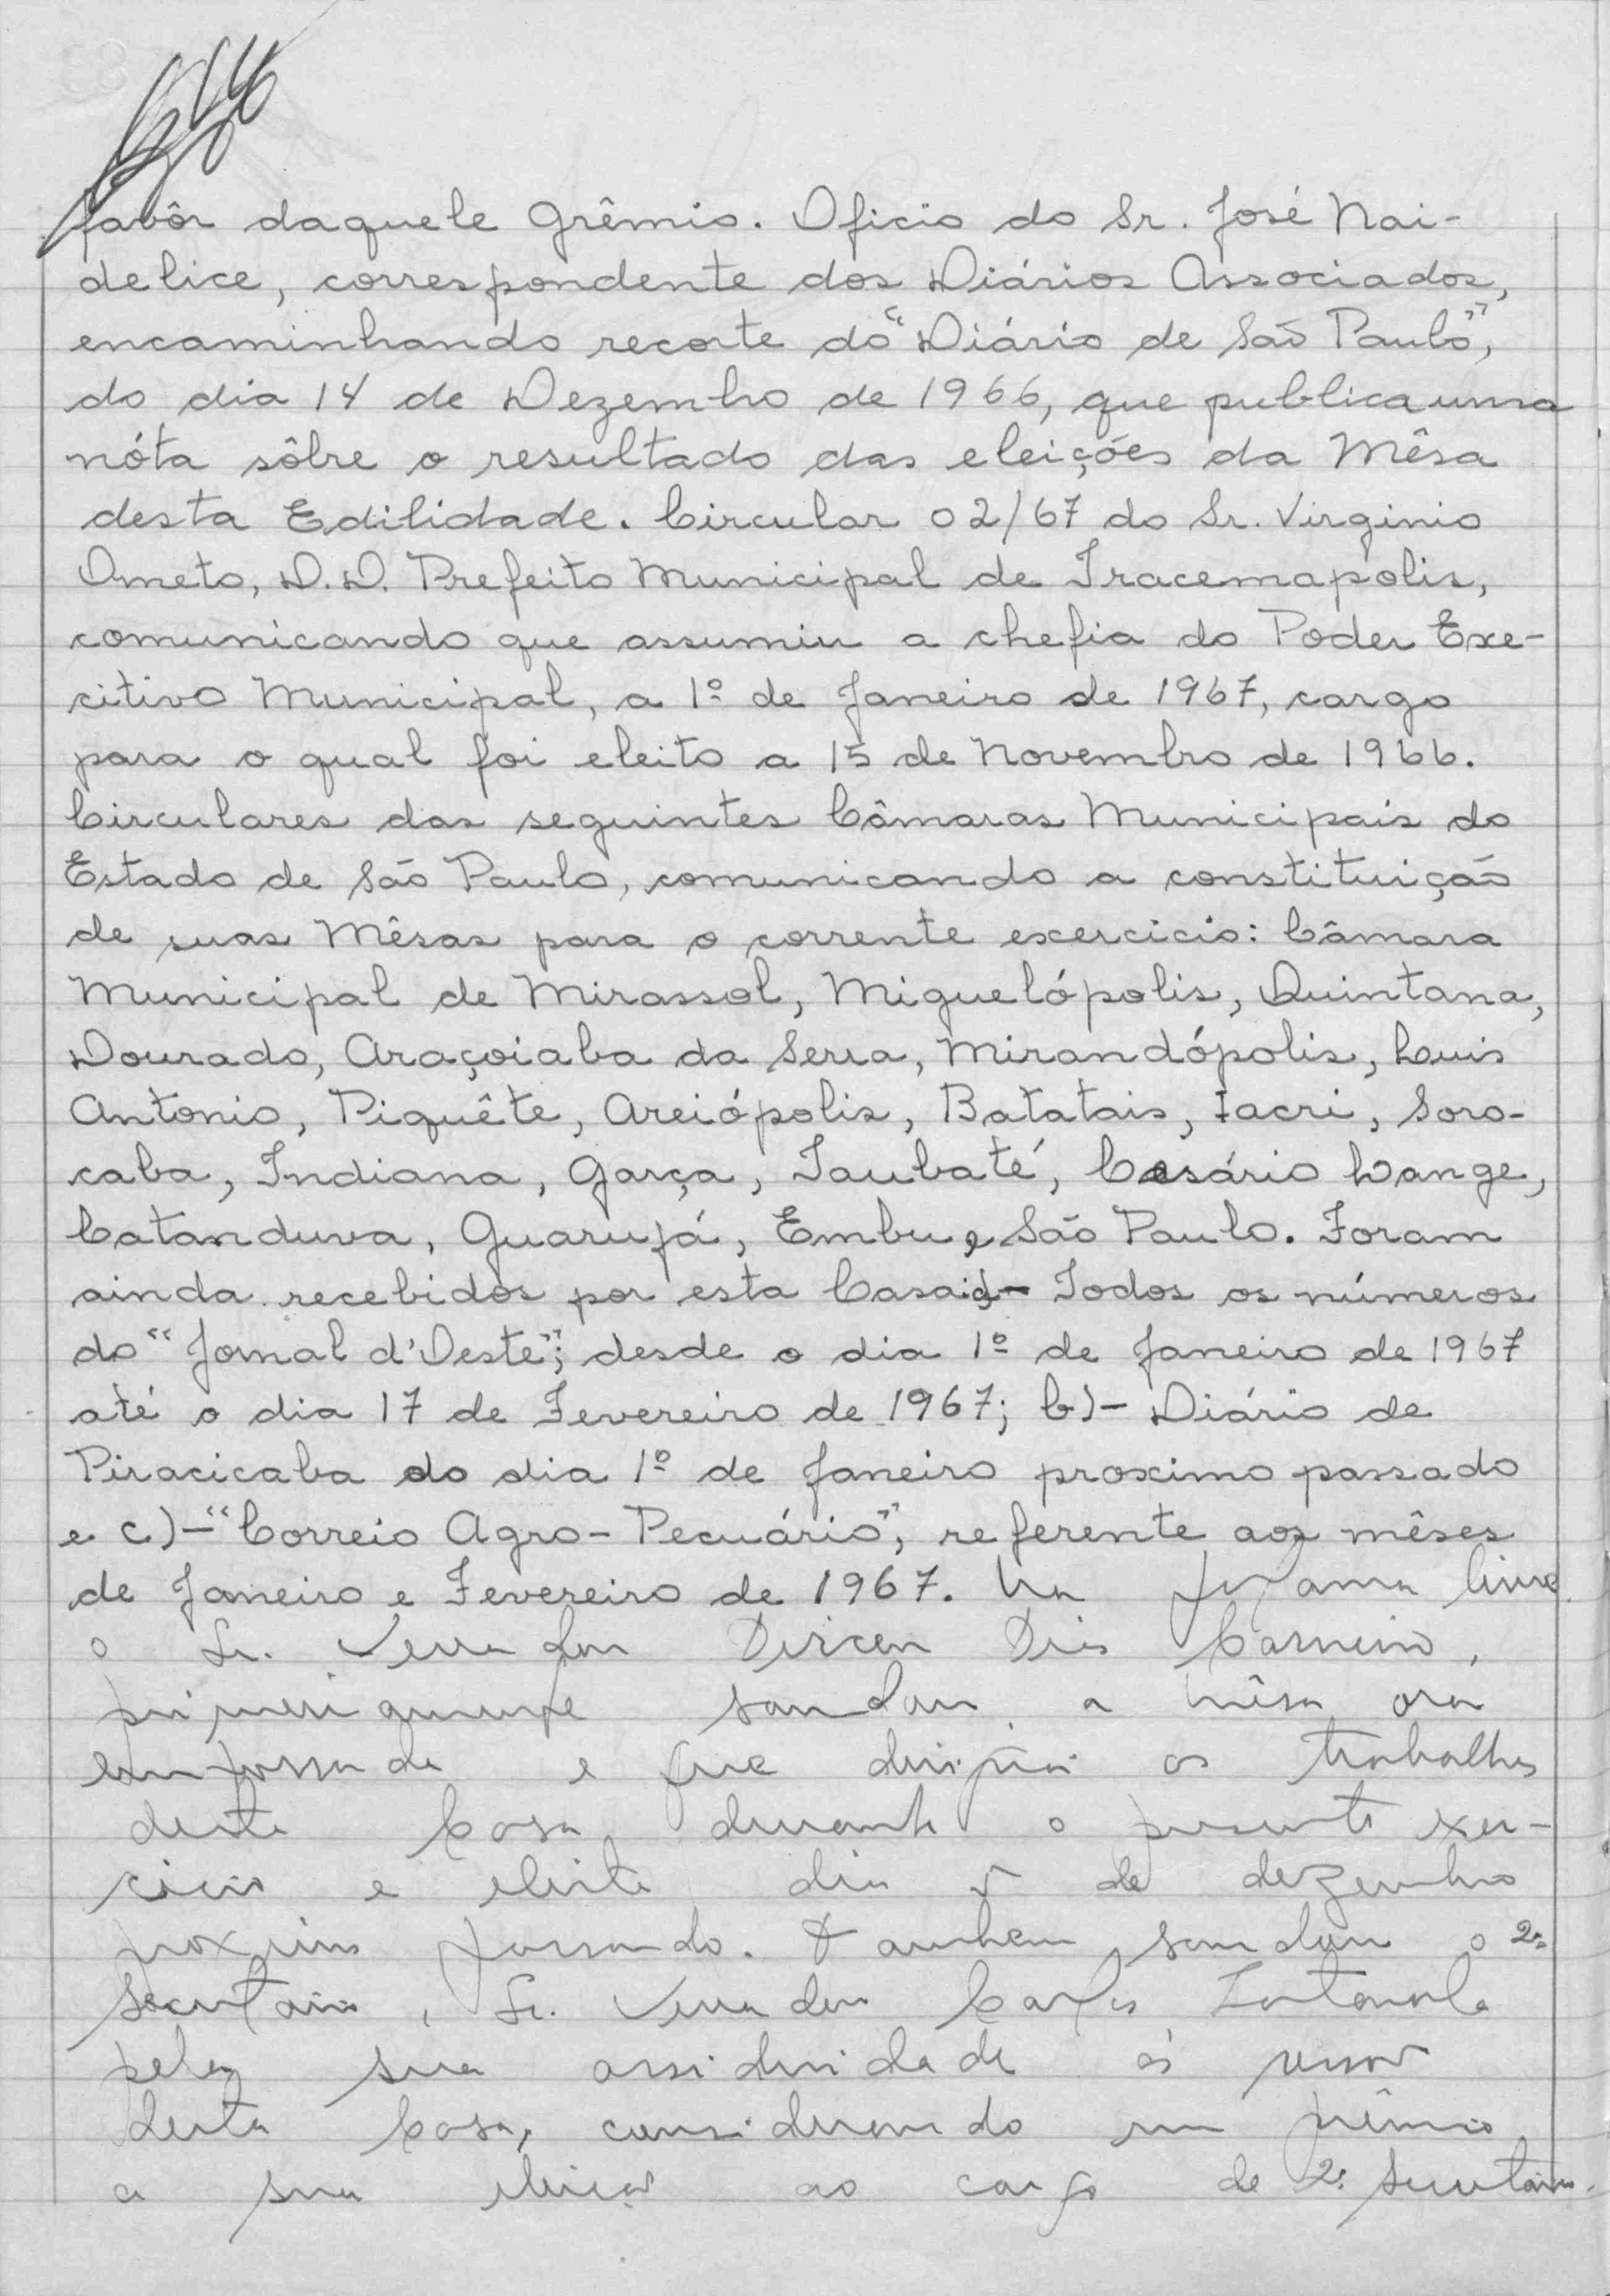 favôr daquele Grêmio. Oficio do Sr. José Nai-
delice, correspondente dos Diários Associados,
encaminhando recorte do "Diário de São Paulo",
do dia 14 de Dezembro de 1966, que publica uma
nóta sôbre o resultado das eleições da Mêsa
desta Edilidade. Circular 02/67 do Sr. Virginio
Ometo, D.D. Prefeito Municipal de Iracemapolis,
comunicando que assumiu a chefia do Poder Exe-
citivo Municipal, a 1º de Janeiro de 1967, cargo
para o qual foi eleito a 15 de Novembro de 1966.
Circulares das seguintes Câmaras Municipais do
Estado de São Paulo, comunicando a constituição
de suas Mêsas para o corrente exercicio: Câmara
Municipal de Mirassol, Miguelópolis, Quintana,
Dourado, Araçoiaba da Serra, Mirandópolis, Luis
Antonio, Piquête, Areiópolis, Batatais, Iacri, Soro-
caba, Indiana, Garça, Taubaté, Cesário Lange,
Catanduva, Guarujá, Embu e São Paulo. Foram
ainda recebidos por esta Casa: a)- Todos os números
do "Jornal d'Oeste", desde o dia 1º de Janeiro de 1967
até o dia 17 de Fevereiro de 1967; b)- Diário de
Piracicaba do dia 1º de Janeiro proximo passado
e c)- "Correio Agro-Pecuário", referente aos mêses
de Janeiro e Fevereiro de 1967. Na palavra livre
o Sr. Vereador Dirceu Dias Carneiro,
primeiramente saudou a mêsa ora
empossada e que dirigirá os trabalhos
desta Casa durante o presente exer-
cicio e eleita dia de dezembro
proximo passado. Tambem saudou o 2º
Secretario, Sr. Vereador Carlos
pela sua assiduidade ás
desta Casa, considerando um prêmio
a sua eleição ao cargo de 2º Secretario.